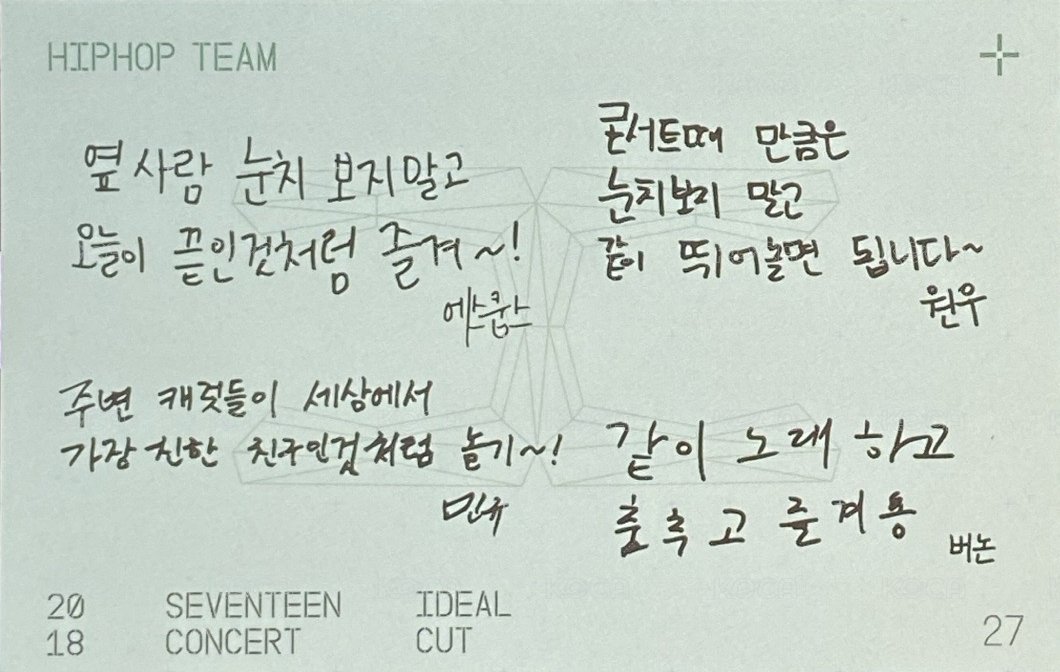 HIPHOP TEAM
옆 사람 눈치 보지말고
오늘이 끝인것처럼 즐겨~!
에스쿱스
콘서트때 만큼은
눈치보지 말고
같이 뛰어놀면 됩니다~
원우
주변 캐럿들이 세상에서
가장 친한 친구인것처럼 놀기~!
민규
같이 노래 하고
춤추고 즐겨용
버논
20 SEVENTEEN IDEAL
18 CONCERT CUT
27